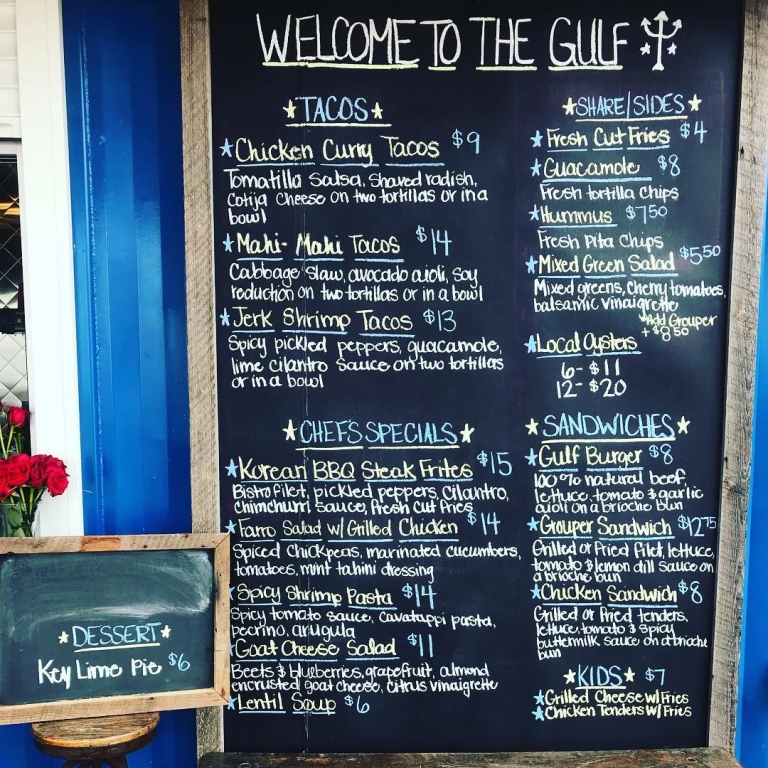 WELCOME TO THE GULF
TACOS
Chicken Curry Tacos $9
Tomatilla Salsa, Shaved radish,
Cotija Cheese on two tortillas or in a
bowl
Mahi-Mahi Tacos $14
Cabbage slaw, avocado aioli, soy
reduction on two tortillas or in a bowl
Jerk Shrimp Tacos $13
Spicy pickled peppers, guacamole,
lime cilantro sauce on two tortillas
or in a bowl
CHEF'S SPECIALS
Korean BBQ Steak Frites $15
Bistro filet, pickled peppers, cilantro,
chimichurri sauce, fresh cut fries
Farro Salad w/ Grilled Chicken $14
Spiced chickpeas, marinated cucumbers,
tomatoes, mint tahini dressing
Spicy Shrimp Pasta $14
Spicy tomato sauce, cavatappi pasta,
pecorino, arugula
Goat Cheese Salad $11
Beets & blueberries, grapefruit, almond
encrusted goat cheese, citrus vinaigrette
Lentil Soup $6
SHARE/SIDES
Fresh Cut Fries $4
Guacamole $8
Fresh tortilla chips
Hummus $7.50
Fresh Pita Chips
Mixed Green Salad $5.50
Mixed greens, cherry tomatoes,
balsamic vinaigrette
*Add Grouper
+$8.50
Local Oysters
6- $11
12- $20
SANDWICHES
Gulf Burger $8
100% natural beef,
lettuce, tomato & garlic
aioli on a brioche bun
Grouper Sandwich $12.75
Grilled or fried filet, lettuce,
tomato & lemon dill sauce on
a brioche bun
Chicken Sandwich $8
Grilled or fried tenders,
lettuce, tomato & spicy
buttermilk sauce on a brioche
bun
KIDS $7
Grilled Cheese w/ Fries
Chicken Tenders w/ Fries
DESSERT
Key Lime Pie $6